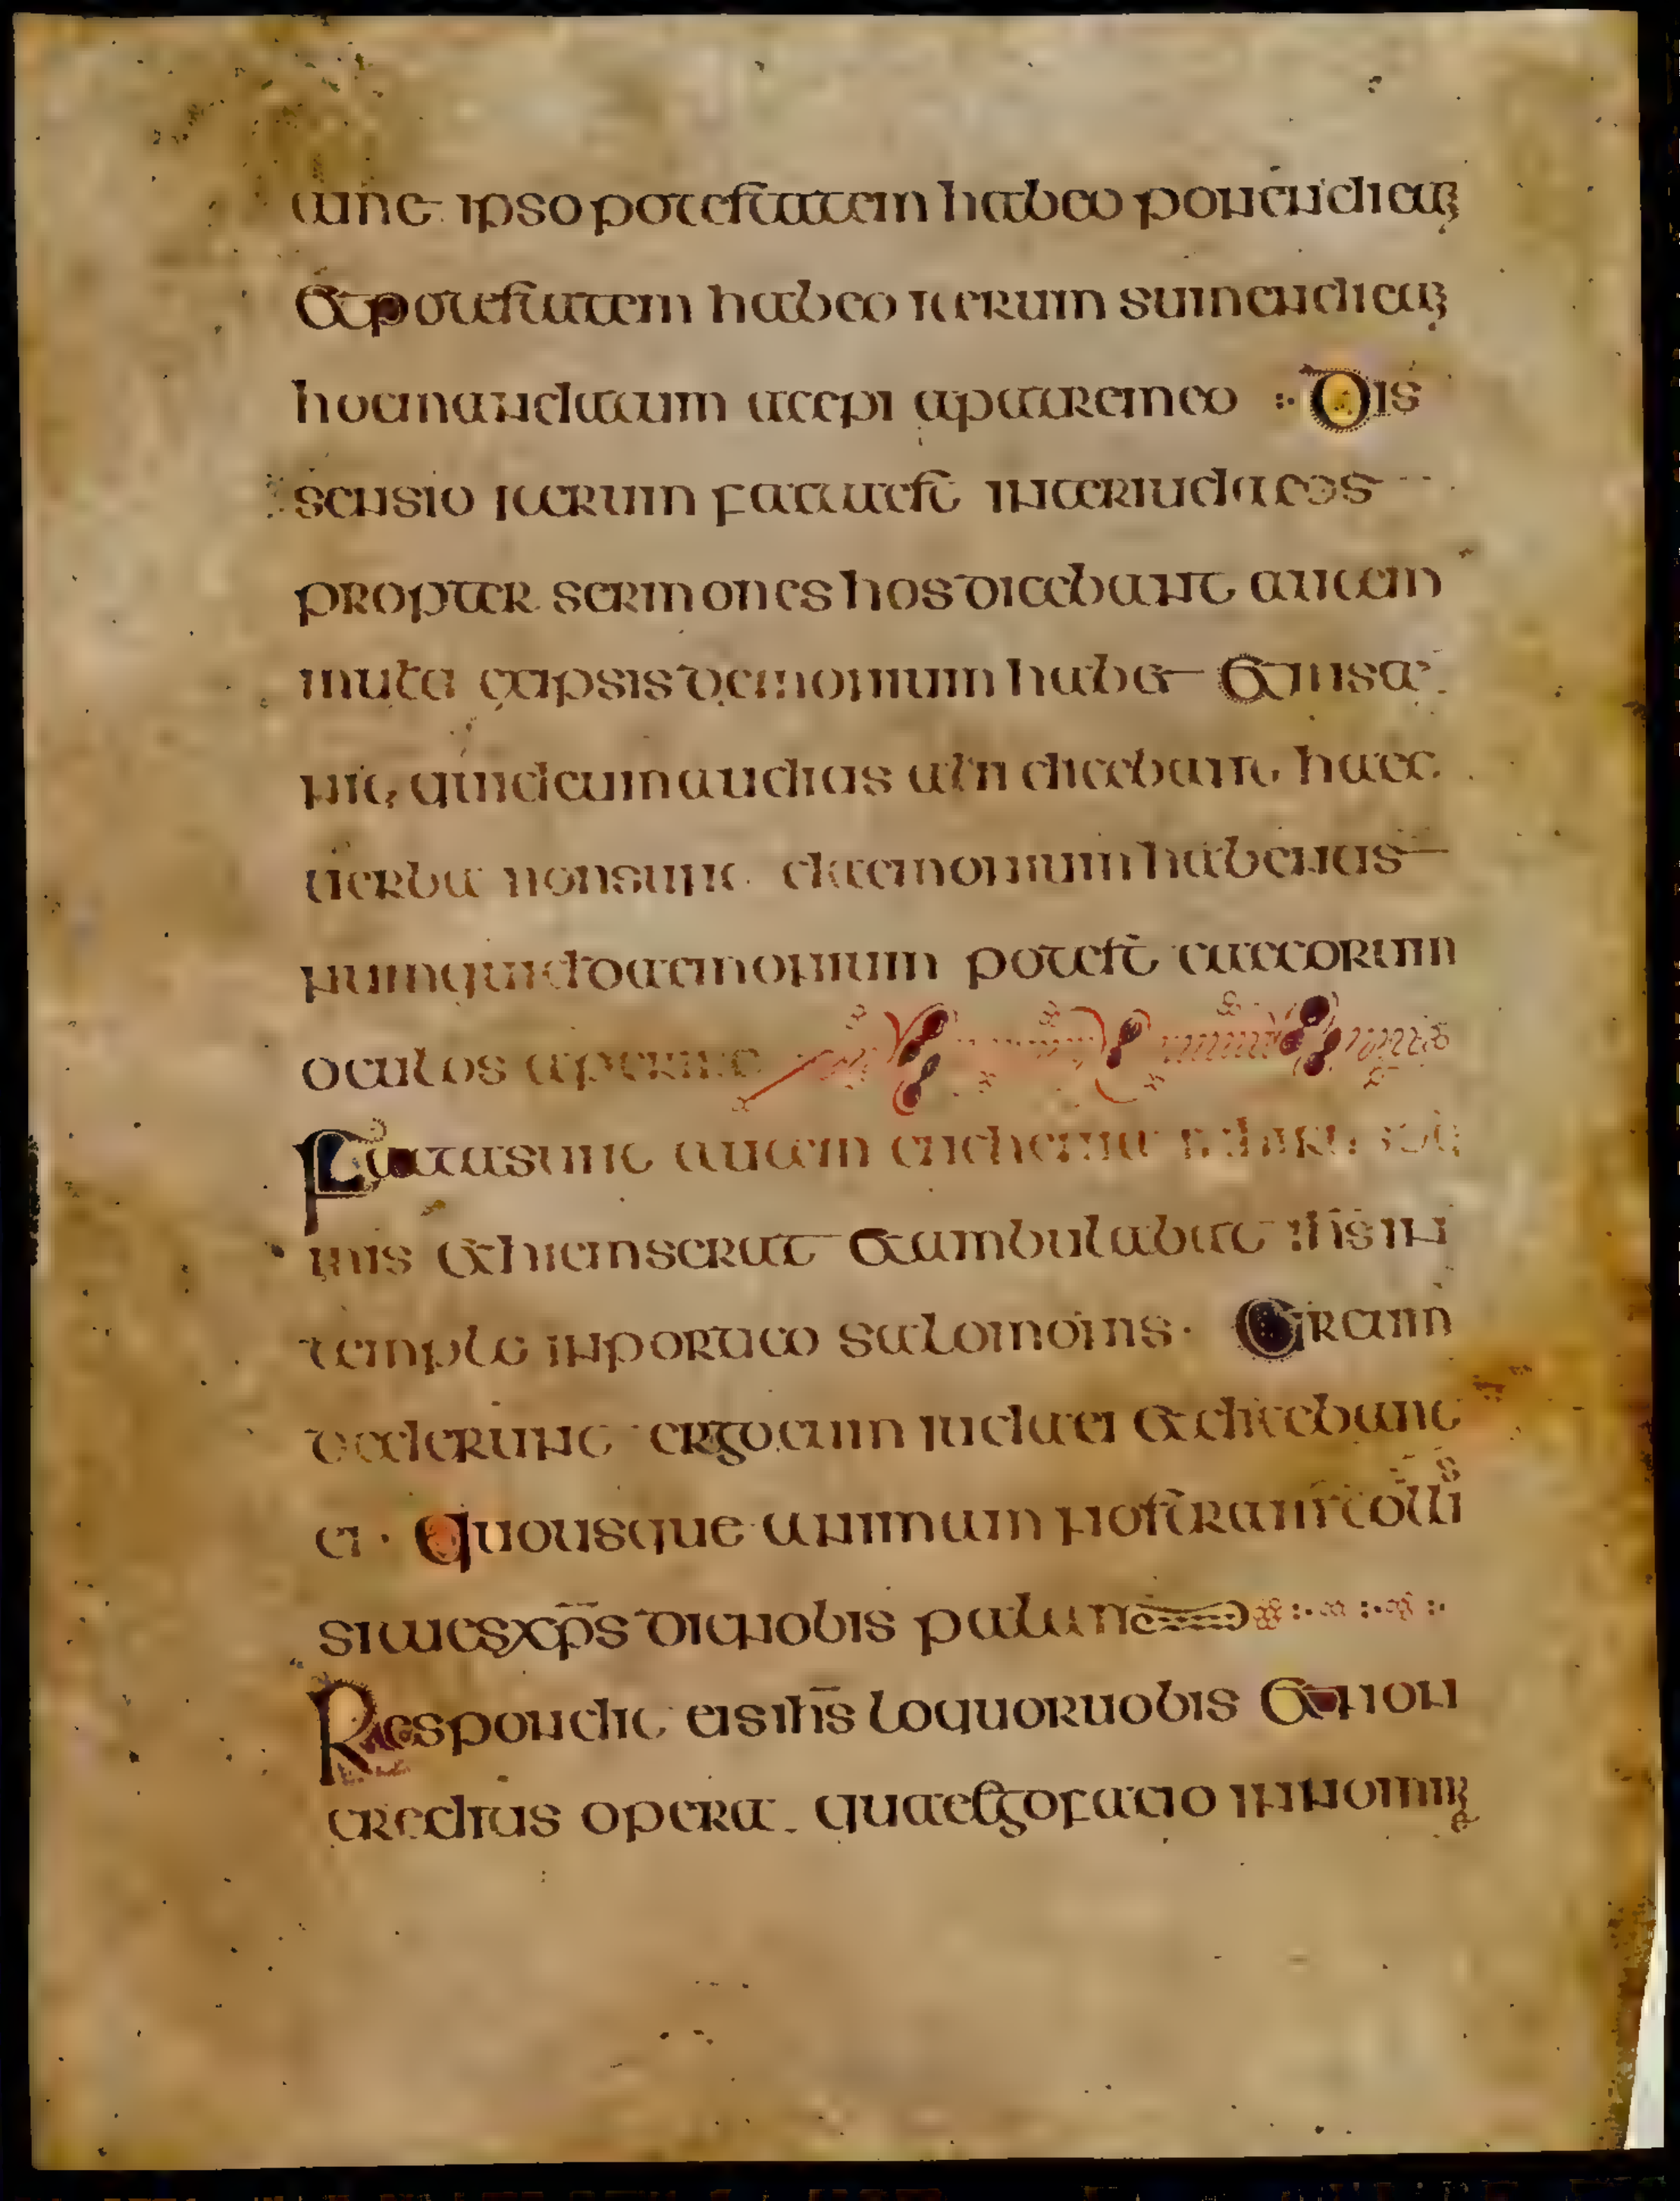 ame ipso potestatem habeo ponendi eam
& potestatem habeo iterum sumendi eam
hoc mandatum accepi apatre meo :· Dis
sensio iterum facta est inter iudaeos
propter sermones hos dicebant autem
multa exipsis demonium habet & insa
nit, quid eum auditis alii dicebant haec
uerba nonsunt daemonium habentis
numquid daemonium potest caecorum
oculos aperire
Facta sunt autem enchenia
mis & hiems erat & ambulabat ihs in
templo inportico salomonis · Circum
dederunt ergo eum iudaei & dicebant
ei · Quousque animam nostram tolli
si tu es xps dic nobis palam
Respondit eis ihs loquor uobis & non
creditis opera quae ego facio in nomine